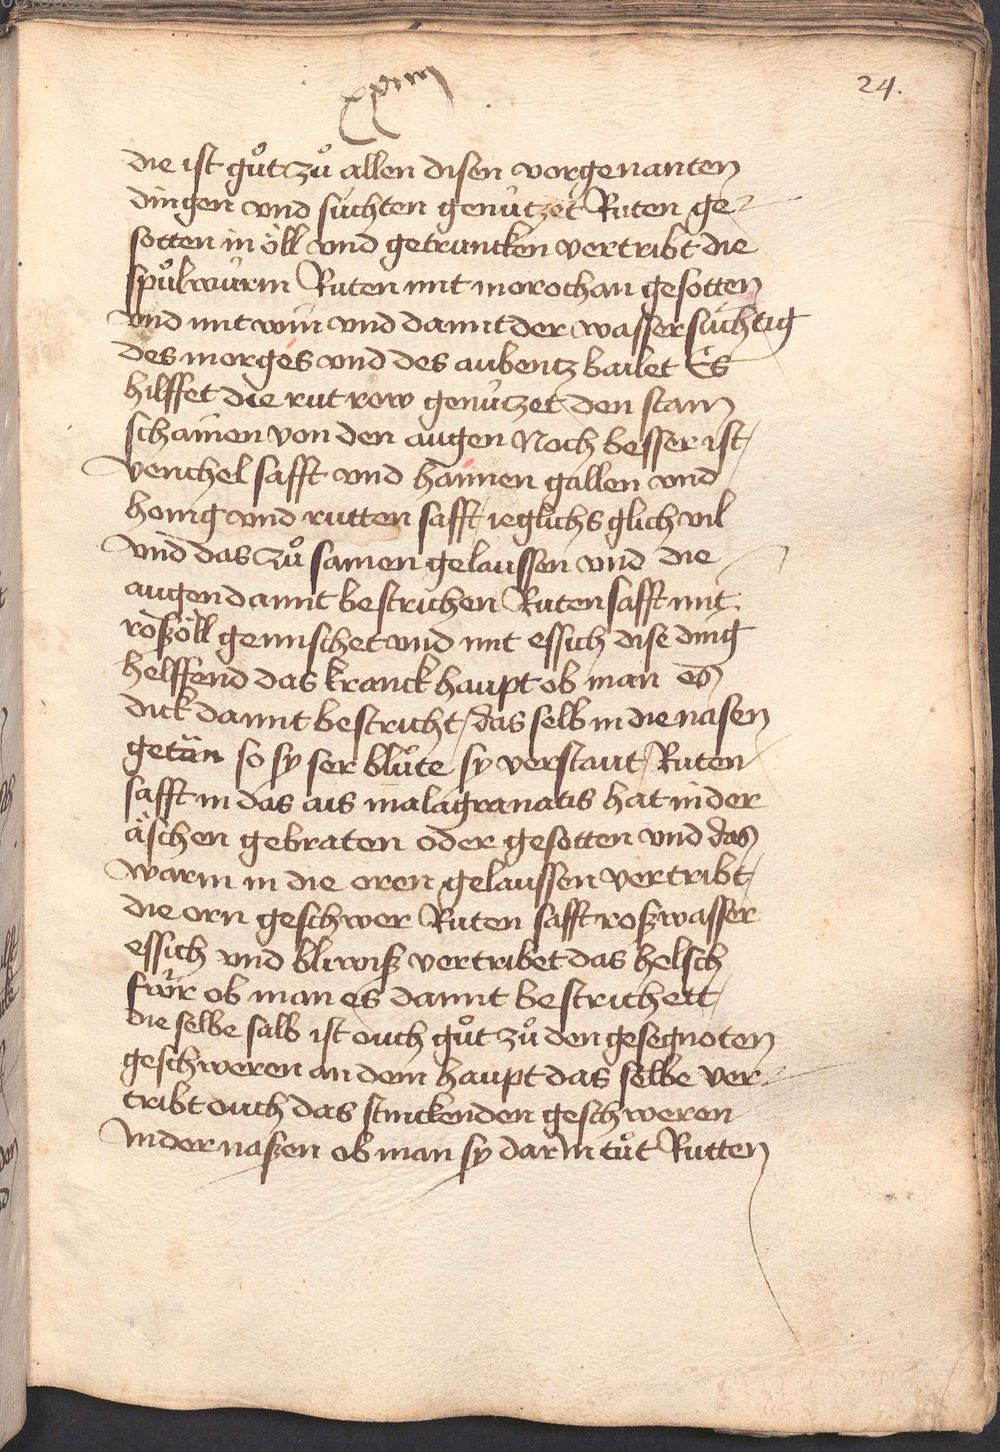 xxiiii
24.
die ist guͦt zuͦ allen disen vorgenanten
dingen vnd suchten genützet Ruten ge-
sotten in öll vnd getruncken vertribt die
spuͦlwürm Ruten mit morochan gesotten
vnd mit win vnd damit der wassersüchtig
des morges vnd des aubentz bailet Es
hilffet die rut row genützet den starn
schainen von den augen Noch besser ist
venchel safft vnd hannen gallen vnd
honig vnd rutten safft ieglichs glich vil
vnd das zuͦ samen gelaussen vnd die
augen damit bestrichen Ruten safft mit
roßöll gemischet vnd mit essich dise ding
helffend das kranck haupt ob man es
dick damit bestricht / das selb in die nasen
getän so sy ser bluͦte sy verstaut / Ruten
safft in das ais malagranatis hat in der
äschen gebraten oder gesotten vnd das
warm in die oren gelaussen vertribt
die orn geschwer Ruten safft roßwasser
essich vnd bliwiß vertribet das helsch
fwr ob man es damit bestrichett
die selbe salb ist ouch guͦt zuͦ den gesegnoten
geschweren an dem haupt das selbe ver-
tribt ouch das stinckenden geschweren
in der naßen ob man sy dar in tuͦt Rutten